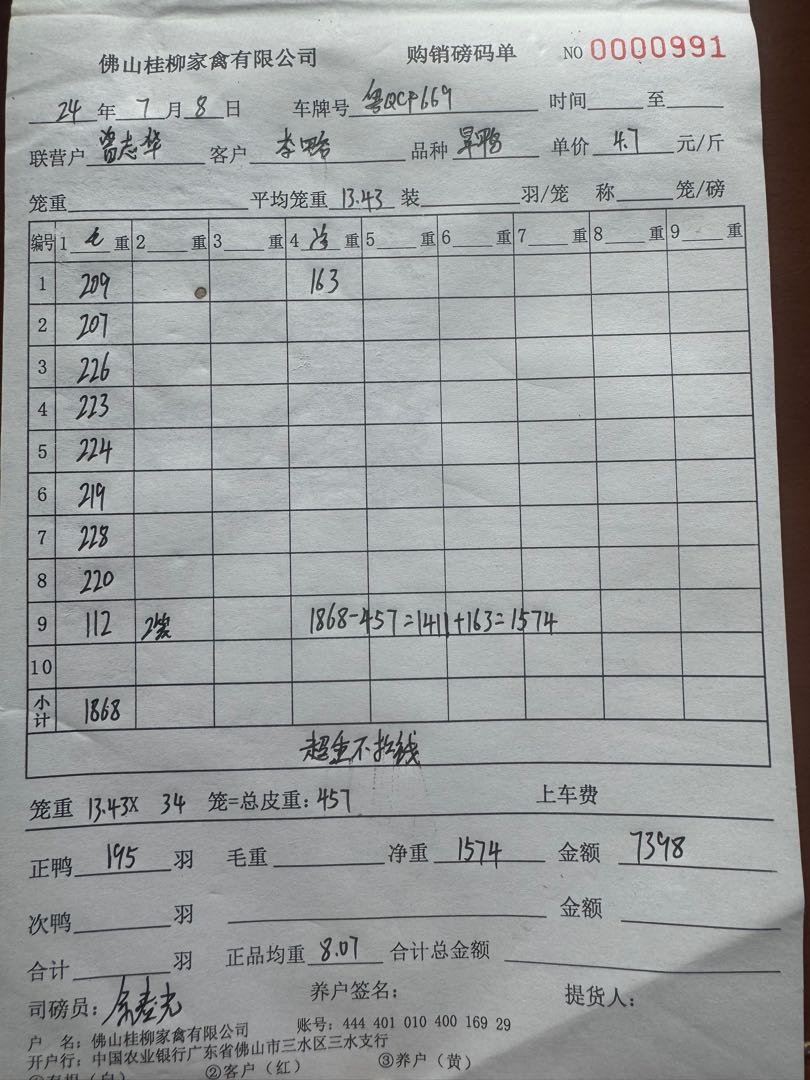 佛山桂柳家禽有限公司 购销磅码单 NO 0000991
24 年 7 月 8 日 车牌号 粤QCP669 时间 至
联营户 曾志华 客户 李 品种 旱鸭 单价 4.7 元/斤
笼重 平均笼重 13.43 装 羽/笼 称 笼/磅
编号 1 毛 重 2 重 3 重 4 净 重 5 重 6 重 7 重 8 重 9 重
1 209 163
2 207
3 226
4 223
5 224
6 219
7 228
8 220
9 112 1868-457=1411+163=1574
10
小计 1868
超重不扣钱
笼重 13.43X 34 笼=总皮重: 457 上车费
正鸭 195 羽 毛重 净重 1574 金额 7398
次鸭 羽 金额
合计 羽 正品均重 8.07 合计总金额
司磅员: 养户签名: 提货人:
户 名: 佛山桂柳家禽有限公司 账号: 444 401 010 400 169 29
开户行: 中国农业银行广东省佛山市三水区三水支行
①存根(白) ②客户(红) ③养户(黄)